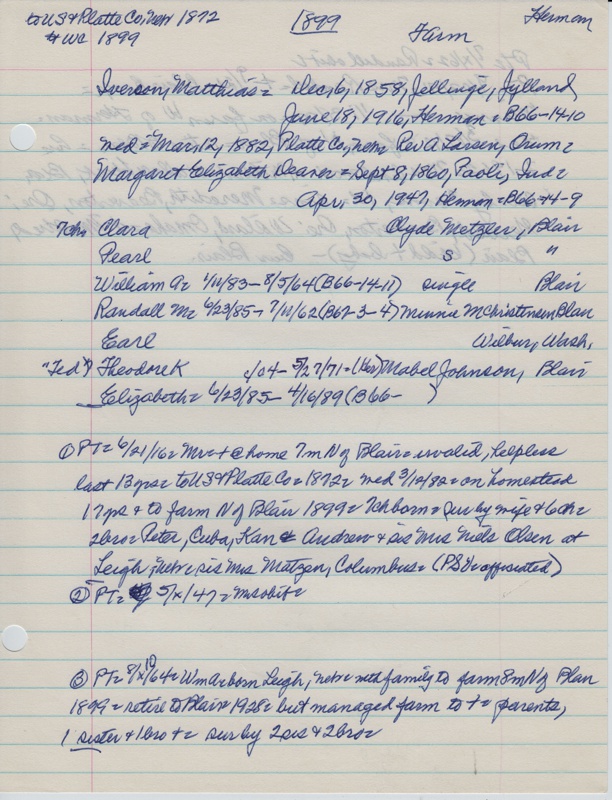 to US & Platte Co, Nebr 1872
to WC 1899
1899
Farm
Herman
Iverson, Matthias = Dec, 6, 1858, Jellinge, Jylland
June 18, 1916, Herman = B66-14-10
med = Mar, 12, 1882, Platte Co, Nebr = Rev A Larsen, Orum =
Margaret Elizabeth Deaver = Sept 8, 1860, Paoli, Ind =
Apr, 30, 1947, Herman = B66-14-9
7chn Clara Clyde Metzler, Blair
Pearl S "
William A = 1/11/83 - 8/5/64 (B66-14-11) single Blair
Randall M = 6/23/85 - 7/11/62 (B67-3-4) Minnie M Christensen Blair
Earl Wilbur, Wash,
"Ted") Theodore K c/04 - 5/27/71 = (Her) Mabel Johnson, Blair
Elizabeth = 6/23/85 - 4/16/89 (B66- )
① PT = 6/21/16 = Mr = + @ home 7m N of Blair = invalid, helpless
last 13 yrs = to US & Platte Co = 1872 = med 3/12/82 = on homestead
17 yrs + to farm N of Blair 1899 = 7ch born = sur by wife & 6 ch =
2 bro = Peter, Cuba, Kan & Andrew + sis Mrs Niels Olsen at
Leigh, Nebr = sis Mrs Matzen, Columbus = (PSV = officiated)
② PT = 5/x/47 = no obit =
③ PT = 8/10/64 = Wm A = born Leigh, Nebr = with family to farm 8m N of Blair
1899 = retire to Blair 1928 = but managed farm to + = parents,
1 sister + 1 bro + = sur by 2 sis & 2 bro =